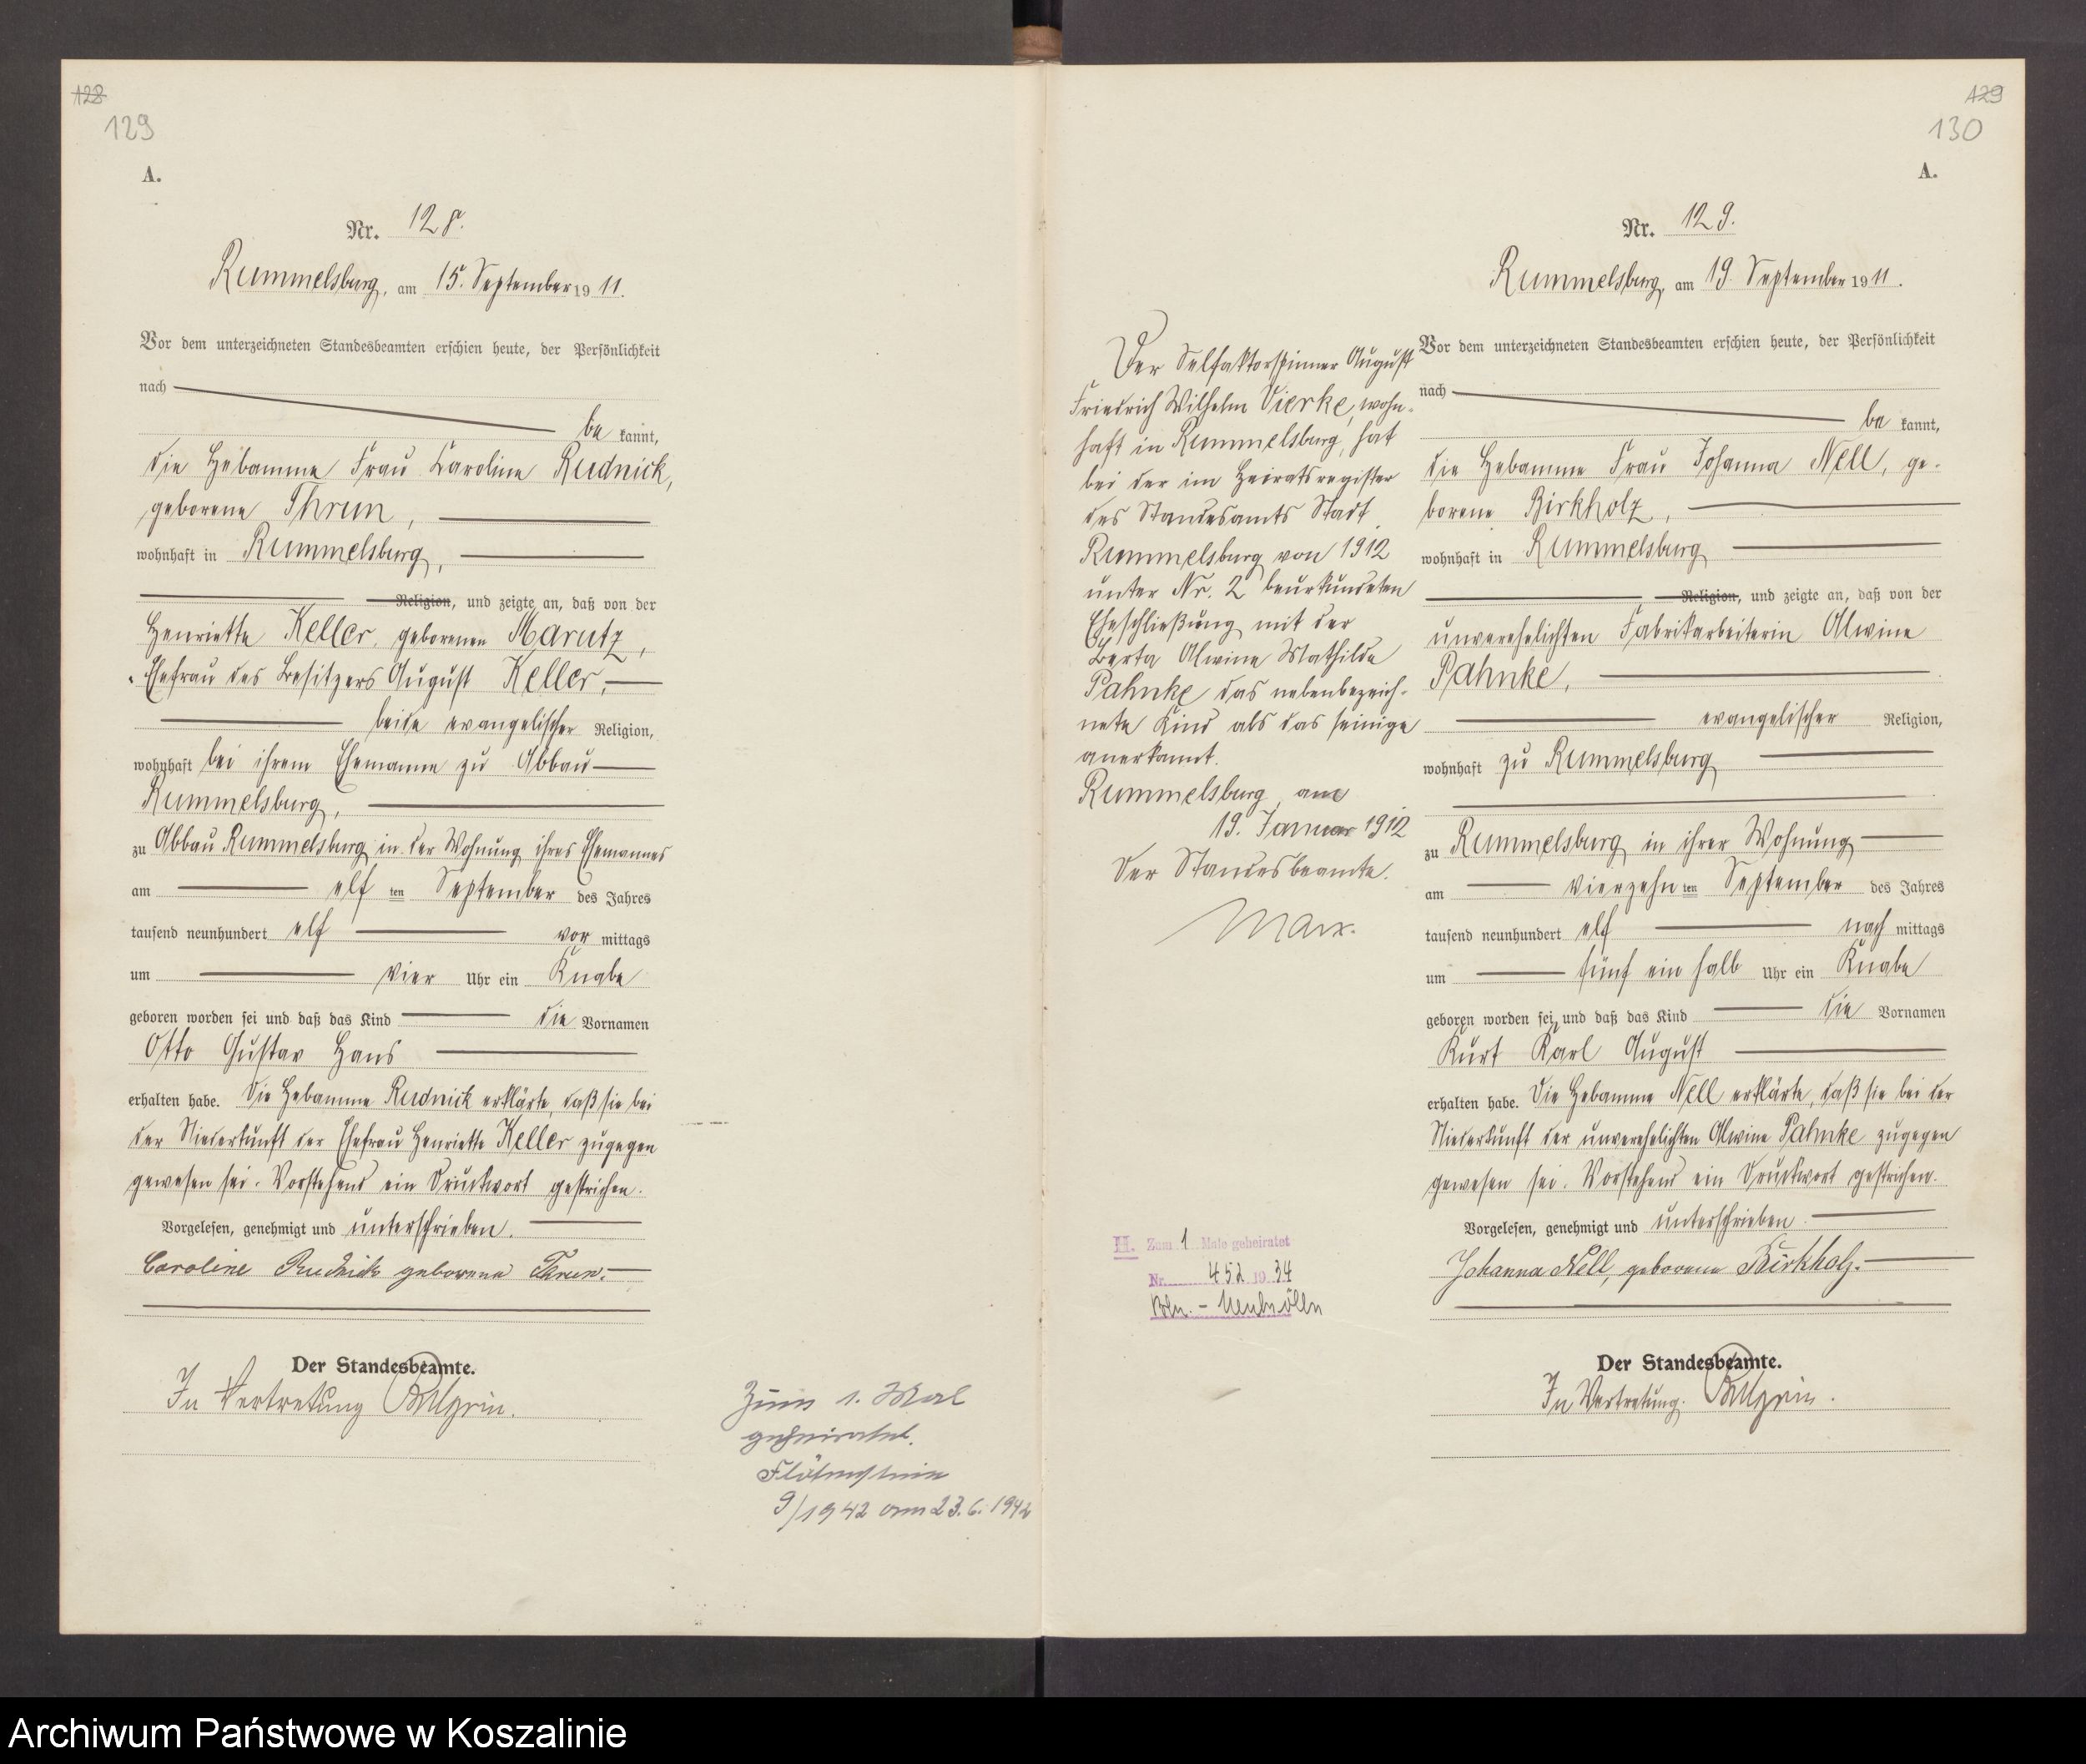 128
129
A.
Nr. 128.
Rummelsburg, am 15. September 1911.
Vor dem unterzeichneten Standesbeamten erschien heute, der Persönlichkeit
nach
be kannt,
die Hebamme Frau Caroline Rudnick,
geborene Thrun,
wohnhaft in Rummelsburg,
Religion, und zeigte an, daß von der
Henriette Keller, geborenen Marutz,
Ehefrau des Besitzers August Keller,
beide evangelischer Religion,
wohnhaft bei ihrem Ehemanne zu Abbau
Rummelsburg,
zu Abbau Rummelsburg in der Wohnung ihres Ehemannes
am elf ten September des Jahres
tausend neunhundert elf vor mittags
um vier Uhr ein Knabe
geboren worden sei und daß das Kind die Vornamen
Otto Gustav Hans
erhalten habe. Die Hebamme Rudnick erklärte, daß sie bei
der Niederkunft der Ehefrau Henriette Keller zugegen
gewesen sei. Vorstehend ein Druckwort gestrichen.
Vorgelesen, genehmigt und unterschrieben.
Caroline Rudnick geborene Thrun.
Der Standesbeamte.
In Vertretung
Zum 1. Mal
geheiratet.
Flötenstein
9/1942 am 23.6.1942
129
130
A.
Nr. 129.
Rummelsburg, am 19. September 1911.
Vor dem unterzeichneten Standesbeamten erschien heute, der Persönlichkeit
nach
be kannt,
die Hebamme Frau Johanna Nell, ge-
borene Birkholz,
wohnhaft in Rummelsburg
Religion, und zeigte an, daß von der
unverehelichten Fabrikarbeiterin Alwine
Pahnke,
evangelischer Religion,
wohnhaft zu Rummelsburg
zu Rummelsburg in ihrer Wohnung
am vierzehn ten September des Jahres
tausend neunhundert elf nach mittags
um fünf ein halb Uhr ein Knabe
geboren worden sei, und daß das Kind die Vornamen
Kurt Karl August
erhalten habe. Die Hebamme Nell erklärte, daß sie bei der
Niederkunft der unverehelichten Alwine Pahnke zugegen
gewesen sei. Vorstehend ein Druckwort gestrichen.
Vorgelesen, genehmigt und unterschrieben.
Johanna Nell, geborene Birkholz.
Der Standesbeamte.
In Vertretung.
Der Selfaktorspinner August
Friedrich Wilhelm Vierke, wohn-
haft in Rummelsburg, hat
bei der im Heiratsregister
des Standesamts Stadt
Rummelsburg von 1912
unter Nr. 2 beurkundeten
Eheschließung mit der
Berta Alwine Mathilde
Pahnke das nebenbezeich-
nete Kind als das seinige
anerkannt.
Rummelsburg, am
19. Januar 1912
Der Standesbeamte.
Marx.
H. Zum 1 Male geheiratet
Nr. 452 1934
Bln. - Neukölln
Archiwum Państwowe w Koszalinie